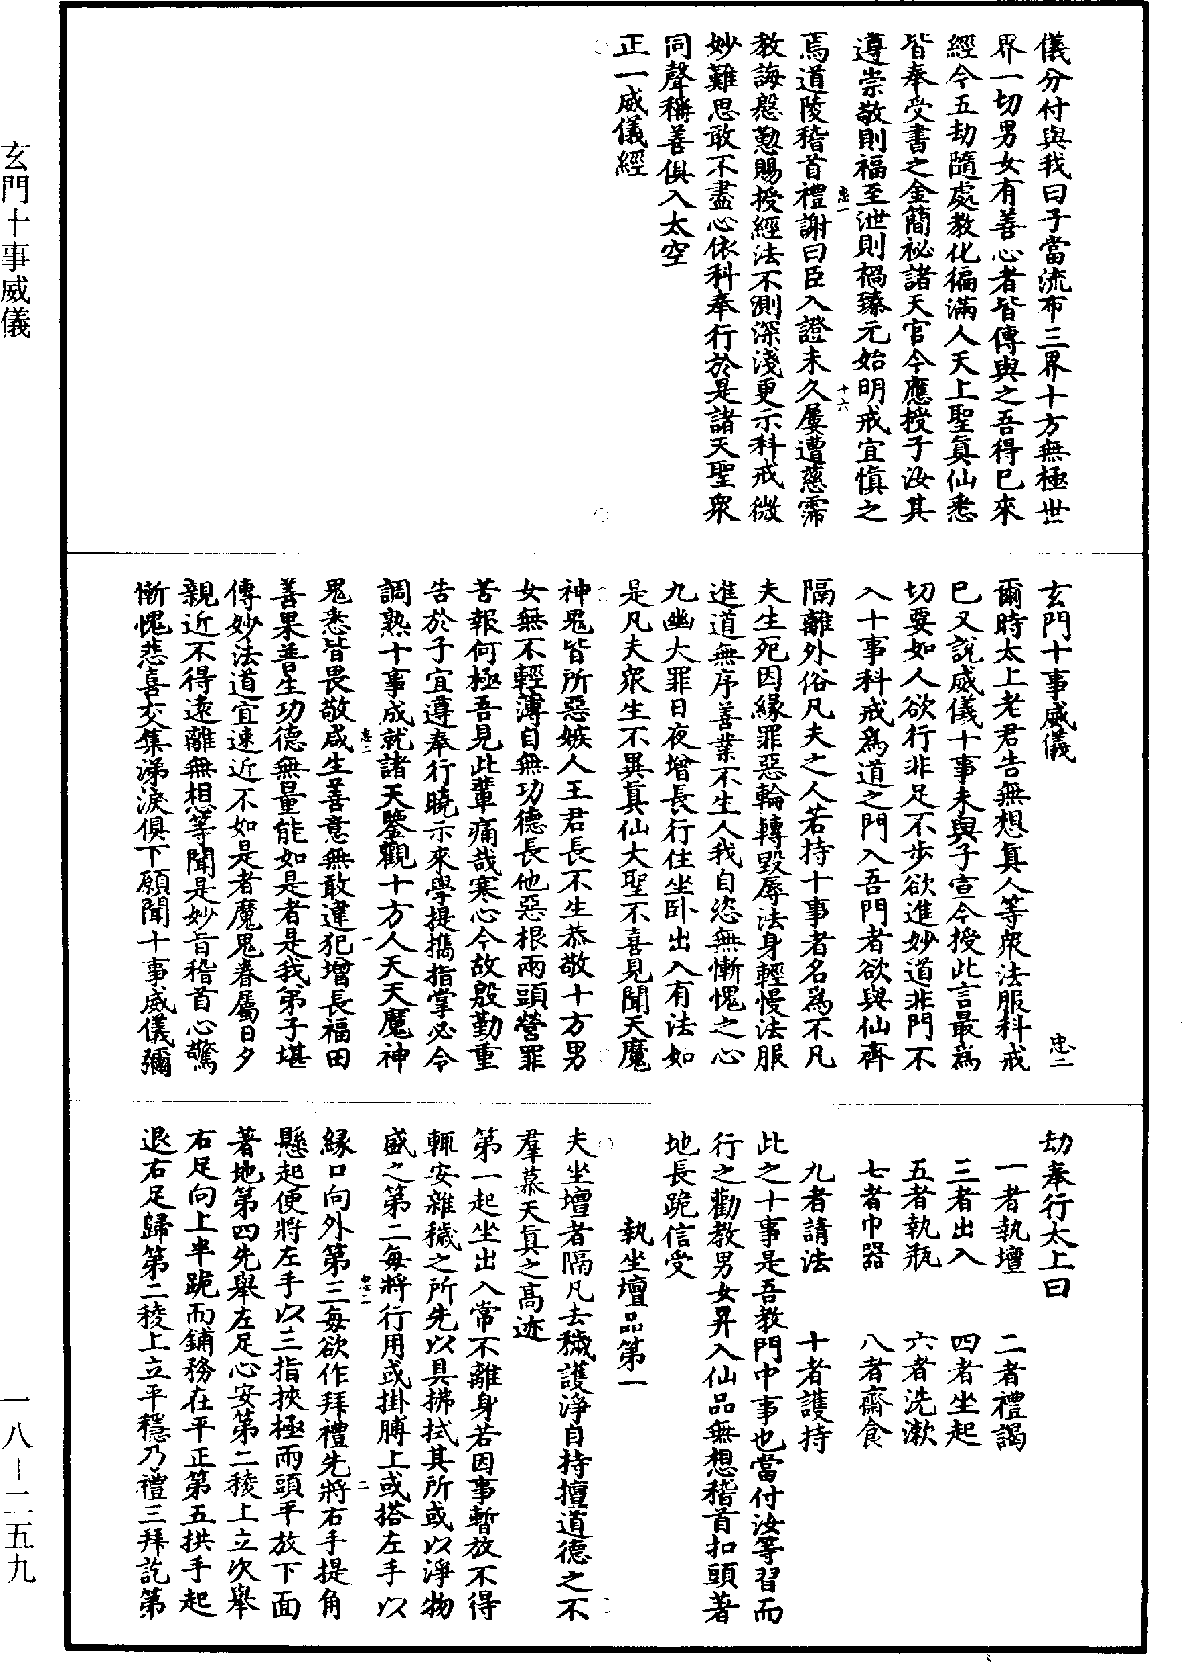 儀分付與我曰子當流布三界十方無極世
界一切男女有善心者皆傳與之吾得已來
經今五劫隨處教化徧滿人天上聖眞仙悉
皆奉受書之金簡祕諸天官今應授子汝其
遵崇敬則福至泄則禍臻元始明戒宜慎之
忠一
十六
焉道陵稽首禮謝曰臣入證未久屢遭慈霈
教誨慇懃賜授經法不測深淺更示科戒微
妙難思敢不盡心依科奉行於是諸天聖衆
同聲稱善俱入太空
正一威儀經
玄門十事威儀
忠二
爾時太上老君告無想眞人等衆法服科戒
已又說威儀十事未與子宣今授此言最爲
切要如人欲行非足不步欲進妙道非門不
入十事科戒爲道之門入吾門者欲與仙齊
隔離外俗凡夫之人若持十事者名爲不凡
夫生死因緣罪惡輪轉毀辱法身輕慢法服
進道無序善業不生人我自恣無慚愧之心
九幽大罪日夜增長行住坐卧出入有法如
是凡夫衆生不異眞仙大聖不喜見聞天魔
神鬼皆所惡嫉人王君長不生恭敬十方男
女無不輕薄自無功德長他惡根兩頭營罪
苦報何極吾見此輩痛哉寒心今故殷勤重
告於子宜遵奉行曉示來學提攜指掌必令
調熟十事成就諸天鑒觀十方人天天魔神
忠二
一
鬼悉皆畏敬咸生善意無敢違犯增長福田
善果善生功德無量能如是者是我弟子堪
傳妙法道宜速近不如是者魔鬼眷屬日夕
親近不得遠離無想等聞是妙旨稽首心驚
慚愧悲喜交集涕淚俱下願聞十事威儀彌
劫奉行太上曰
一者執壇 二者禮謁
三者出入 四者坐起
五者執瓶 六者洗漱
七者巾器 八者齋食
九者請法 十者護持
此之十事是吾教門中事也當付汝等習而
行之勸教男女昇入仙品無想稽首扣頭著
地長跪信受
執坐壇品第一
夫坐壇者隔凡去穢護淨自持擅道德之不
羣慕天眞之高迹
第一起坐出入常不離身若因事暫放不得
輒安雜穢之所先以具拂拭其所或以淨物
盛之第二每將行用或掛膊上或搭左手以
忠二
二
緣口向外第三每欲作拜禮先將右手提角
懸起便將左手以三指挾極兩頭平放下面
著地第四先舉左足心安第二稜上立次舉
右足向上半跪而鋪務在平正第五拱手起
退右足歸第二稜上立平穩乃禮三拜訖第
玄門十事威儀
一八－二五九